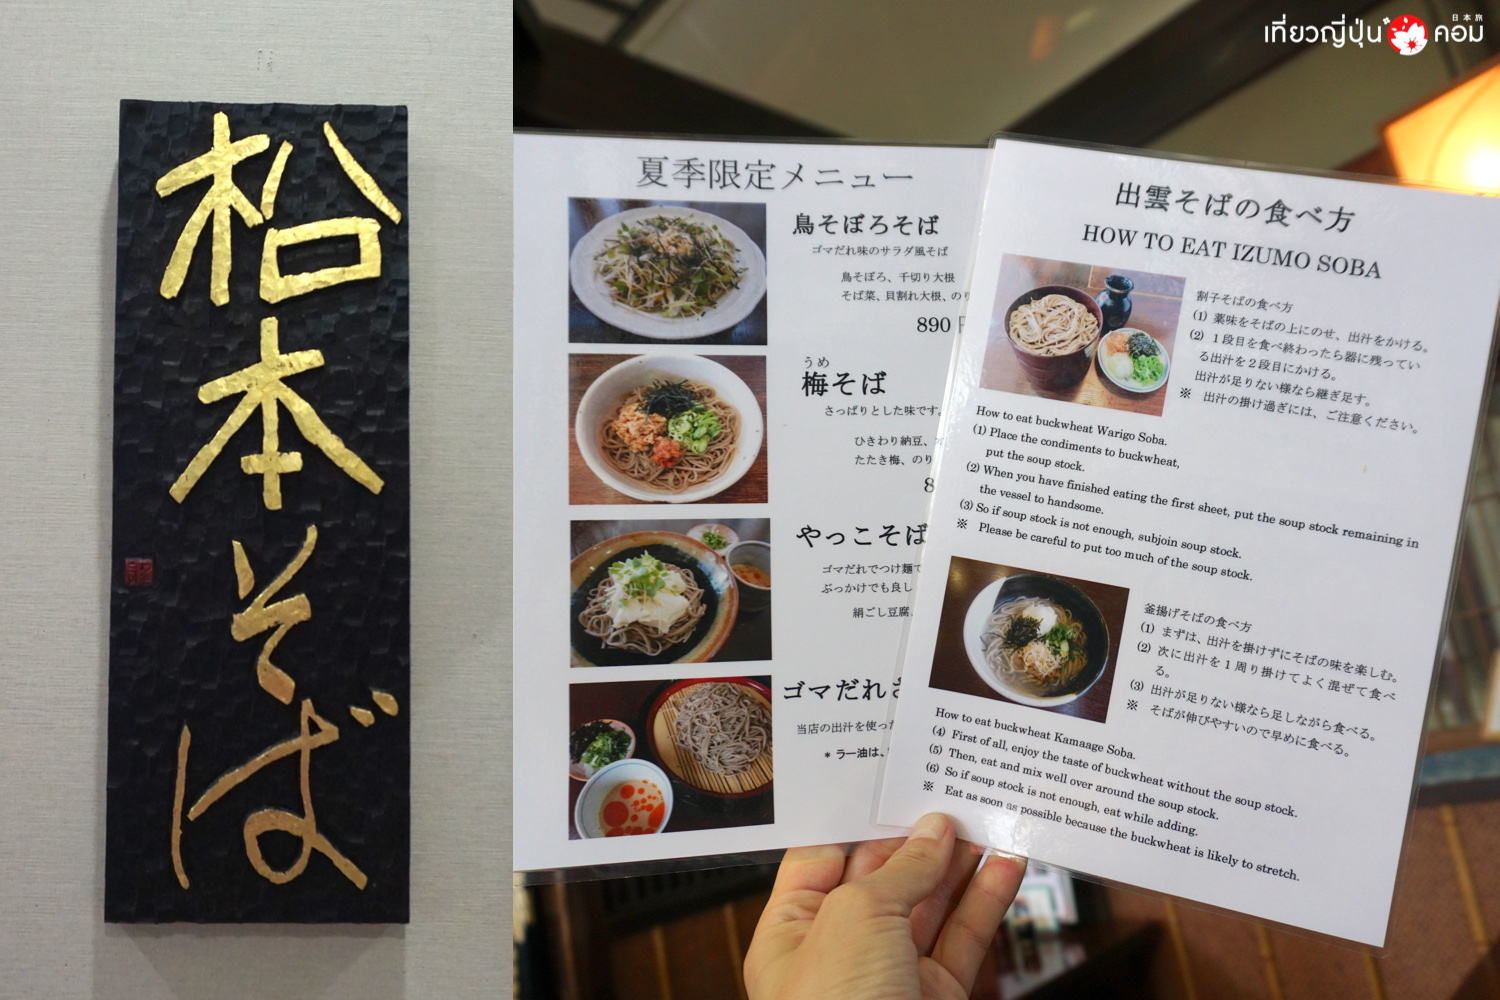 松本そば
夏季限定メニュー
鳥そぼろそば
ゴマだれ味のサラダ風そば
鳥そぼろ、千切り大根
そば菜、貝割れ大根、のり
890
うめ
梅そば
さっぱりとした味です。
ひきわり納豆、
たたき梅、のり
8
やっこそば
ゴマだれでつけ麺で
ぶっかけでも良し
絹ごし豆腐、
ゴマだれ
当店の出汁を使った
* ラー油は、
出雲そばの食べ方
HOW TO EAT IZUMO SOBA
割子そばの食べ方
(1) 薬味をそばの上にのせ、出汁をかける。
(2) 1段目を食べ終わったら器に残ってい
る出汁を2段目にかける。
出汁が足りない様なら継ぎ足す。
※ 出汁の掛け過ぎには、ご注意ください。
How to eat buckwheat Warigo Soba.
(1) Place the condiments to buckwheat,
put the soup stock.
(2) When you have finished eating the first sheet, put the soup stock remaining in
the vessel to handsome.
(3) So if soup stock is not enough, subjoin soup stock.
※ Please be careful to put too much of the soup stock.
釜揚げそばの食べ方
(1) まずは、出汁を掛けずにそばの味を楽しむ。
(2) 次に出汁を1周り掛けてよく混ぜて食べ
る。
(3) 出汁が足りない様なら足しながら食べる。
※ そばが伸びやすいので早めに食べる。
How to eat buckwheat Kamaage Soba.
(4) First of all, enjoy the taste of buckwheat without the soup stock.
(5) Then, eat and mix well over around the soup stock.
(6) So if soup stock is not enough, eat while adding.
※ Eat as soon as possible because the buckwheat is likely to stretch.
日本旅
เที่ยวญี่ปุ่น คอม